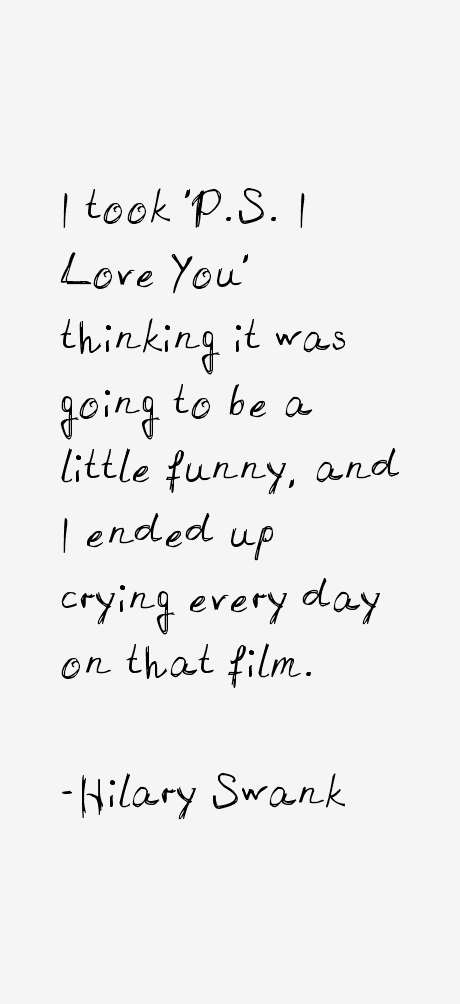 I took 'P.S. I
Love You'
thinking it was
going to be a
little funny, and
I ended up
crying every day
on that film.
-Hilary Swank